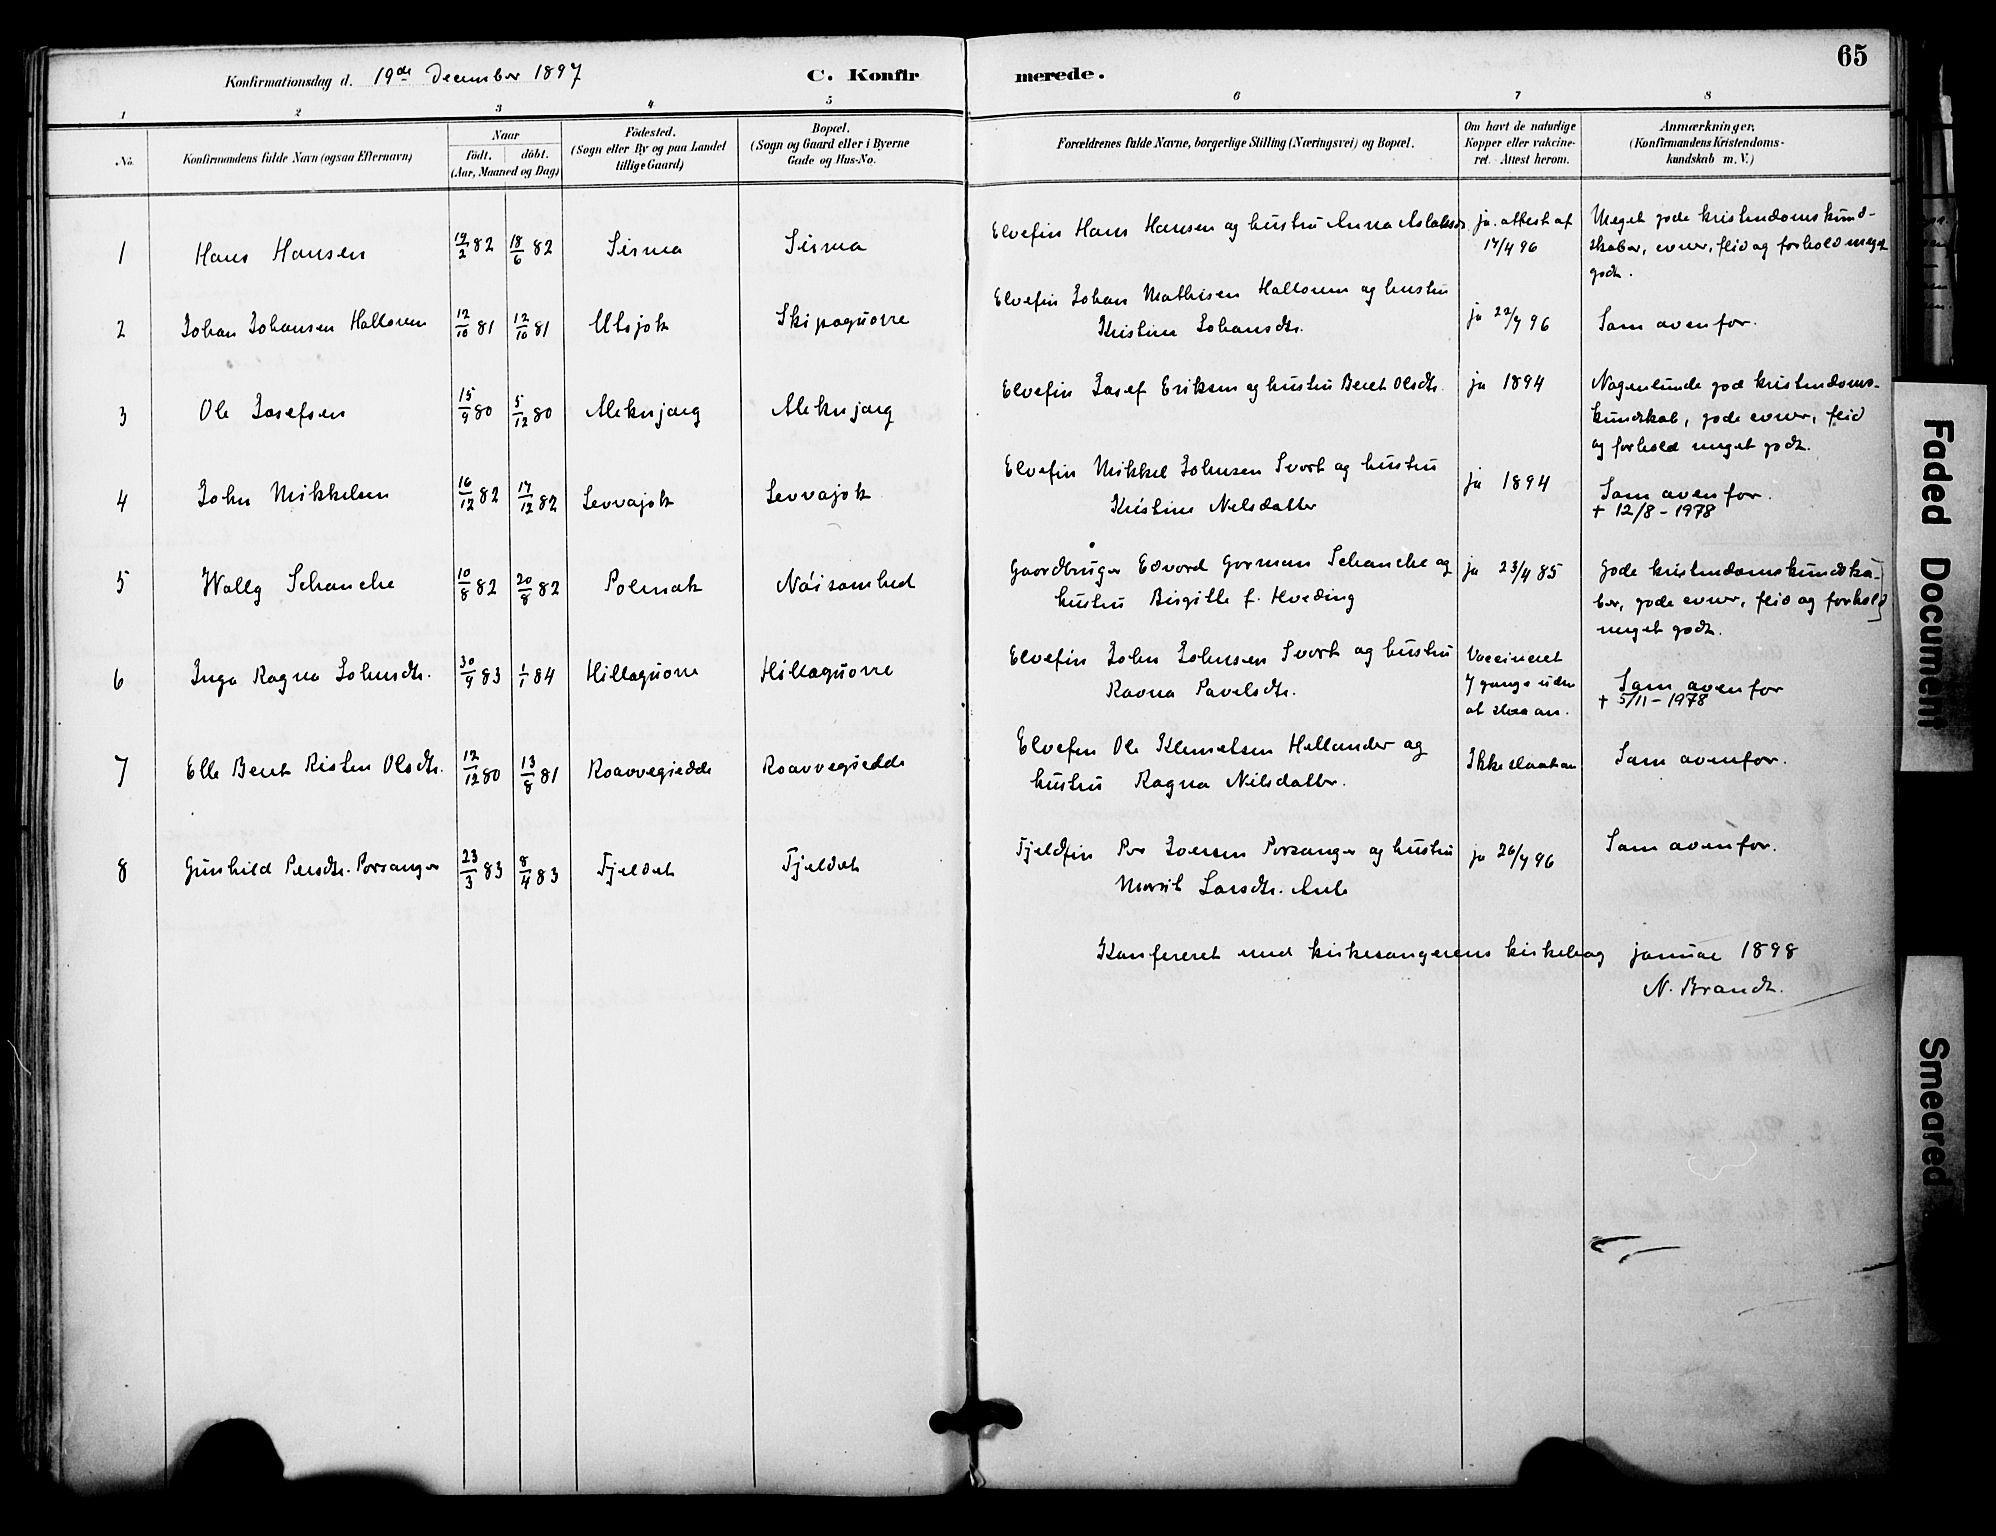 65
Konfirmationsdag d. 19de December 1897
C. Konfirmerede.
1 2 3 4 5 6 7 8
No.
Konfirmandens fulde Navn (ogsaa Efternavn)
Naar
födt. döbt.
(Aar, Maaned og Dag)
Födested.
(Sogn eller By og paa Landet
tillige Gaard)
Bopæl.
(Sogn og Gaard eller i Byerne
Gade og Hus-No.
Forældrenes fulde Navne, borgerlige Stilling (Næringsvei) og Bopæl.
Om havt de naturlige
Kopper eller vakcine-
ret. Attest herom.
Anmærkninger.
(Konfirmandens Kristendoms-
kundskab m. V.)
1 Hans Hansen 19/2 82 18/6 82 Sirma Sirma
Elvefin Hans Hansen og hustru Anna Aslaksdr
ja. attest af
17/4 96
Meget gode kristendomskund-
skaber, evner, flid og forhold meget
godt.
2 Johan Johansen Halloren 12/10 81 12/10 81 Utsjok Skipaguorre
Elvefin Johan Mathisen Halloren og hustru
Kristine Johansdtr.
ja 22/7 96
Som ovenfor.
3 Ole Josefsen 15/9 80 5/12 80 Aleknjarg Aleknjarg
Elvefin Josef Eriksen og hustru Beret Olsdtr.
ja 1894
Nogenlunde god kristendoms-
kundskab, gode evner, flid
og forhold meget godt.
4 John Mikkelsen 16/12 82 17/12 82 Levvajok Levvajok
Elvefin Mikkel Johnsen Svort og hustru
Kristine Nilsdatter
ja 1894
Som ovenfor.
+ 12/8 - 1978
5 Wally Schanche 10/8 82 20/8 82 Polmak Nöisomhed
Gaardbruger Edvard Gorman Schanche og
hustru Birgitte f. Hveding
ja 23/4 85
Gode kristendomskundska-
ber, gode evner, flid og forhold
meget godt.
6 Inga Ragna Johnsdtr. 30/9 83 1/1 84 Hillaguorre Hillaguorre
Elvefin John Johnsen Svort og hustru
Ravna Pavelsdtr.
Vaccineret
7 gange uden
at slaa an.
Som ovenfor
+ 5/11 - 1978
7 Elle Beret Risten Olsdtr. 12/12 80 13/8 81 Roavvegiedde Roavvegiedde
Elvefin Ole Klemetsen Hellander og
hustru Ragna Nilsdatter.
Ikke slaat an
Som ovenfor.
8 Gunhild Persdtr. Porsanger 23/3 83 8/4 83 Fjeldet Fjeldet
Fjeldfin Per Iversen Porsanger og hustru
Marit Larsdtr. Anti
ja 26/7 96
Som ovenfor.
Konfereret med kirkesangerens kirkebog januar 1898
N. Brandt.
Faded Document
Smeared